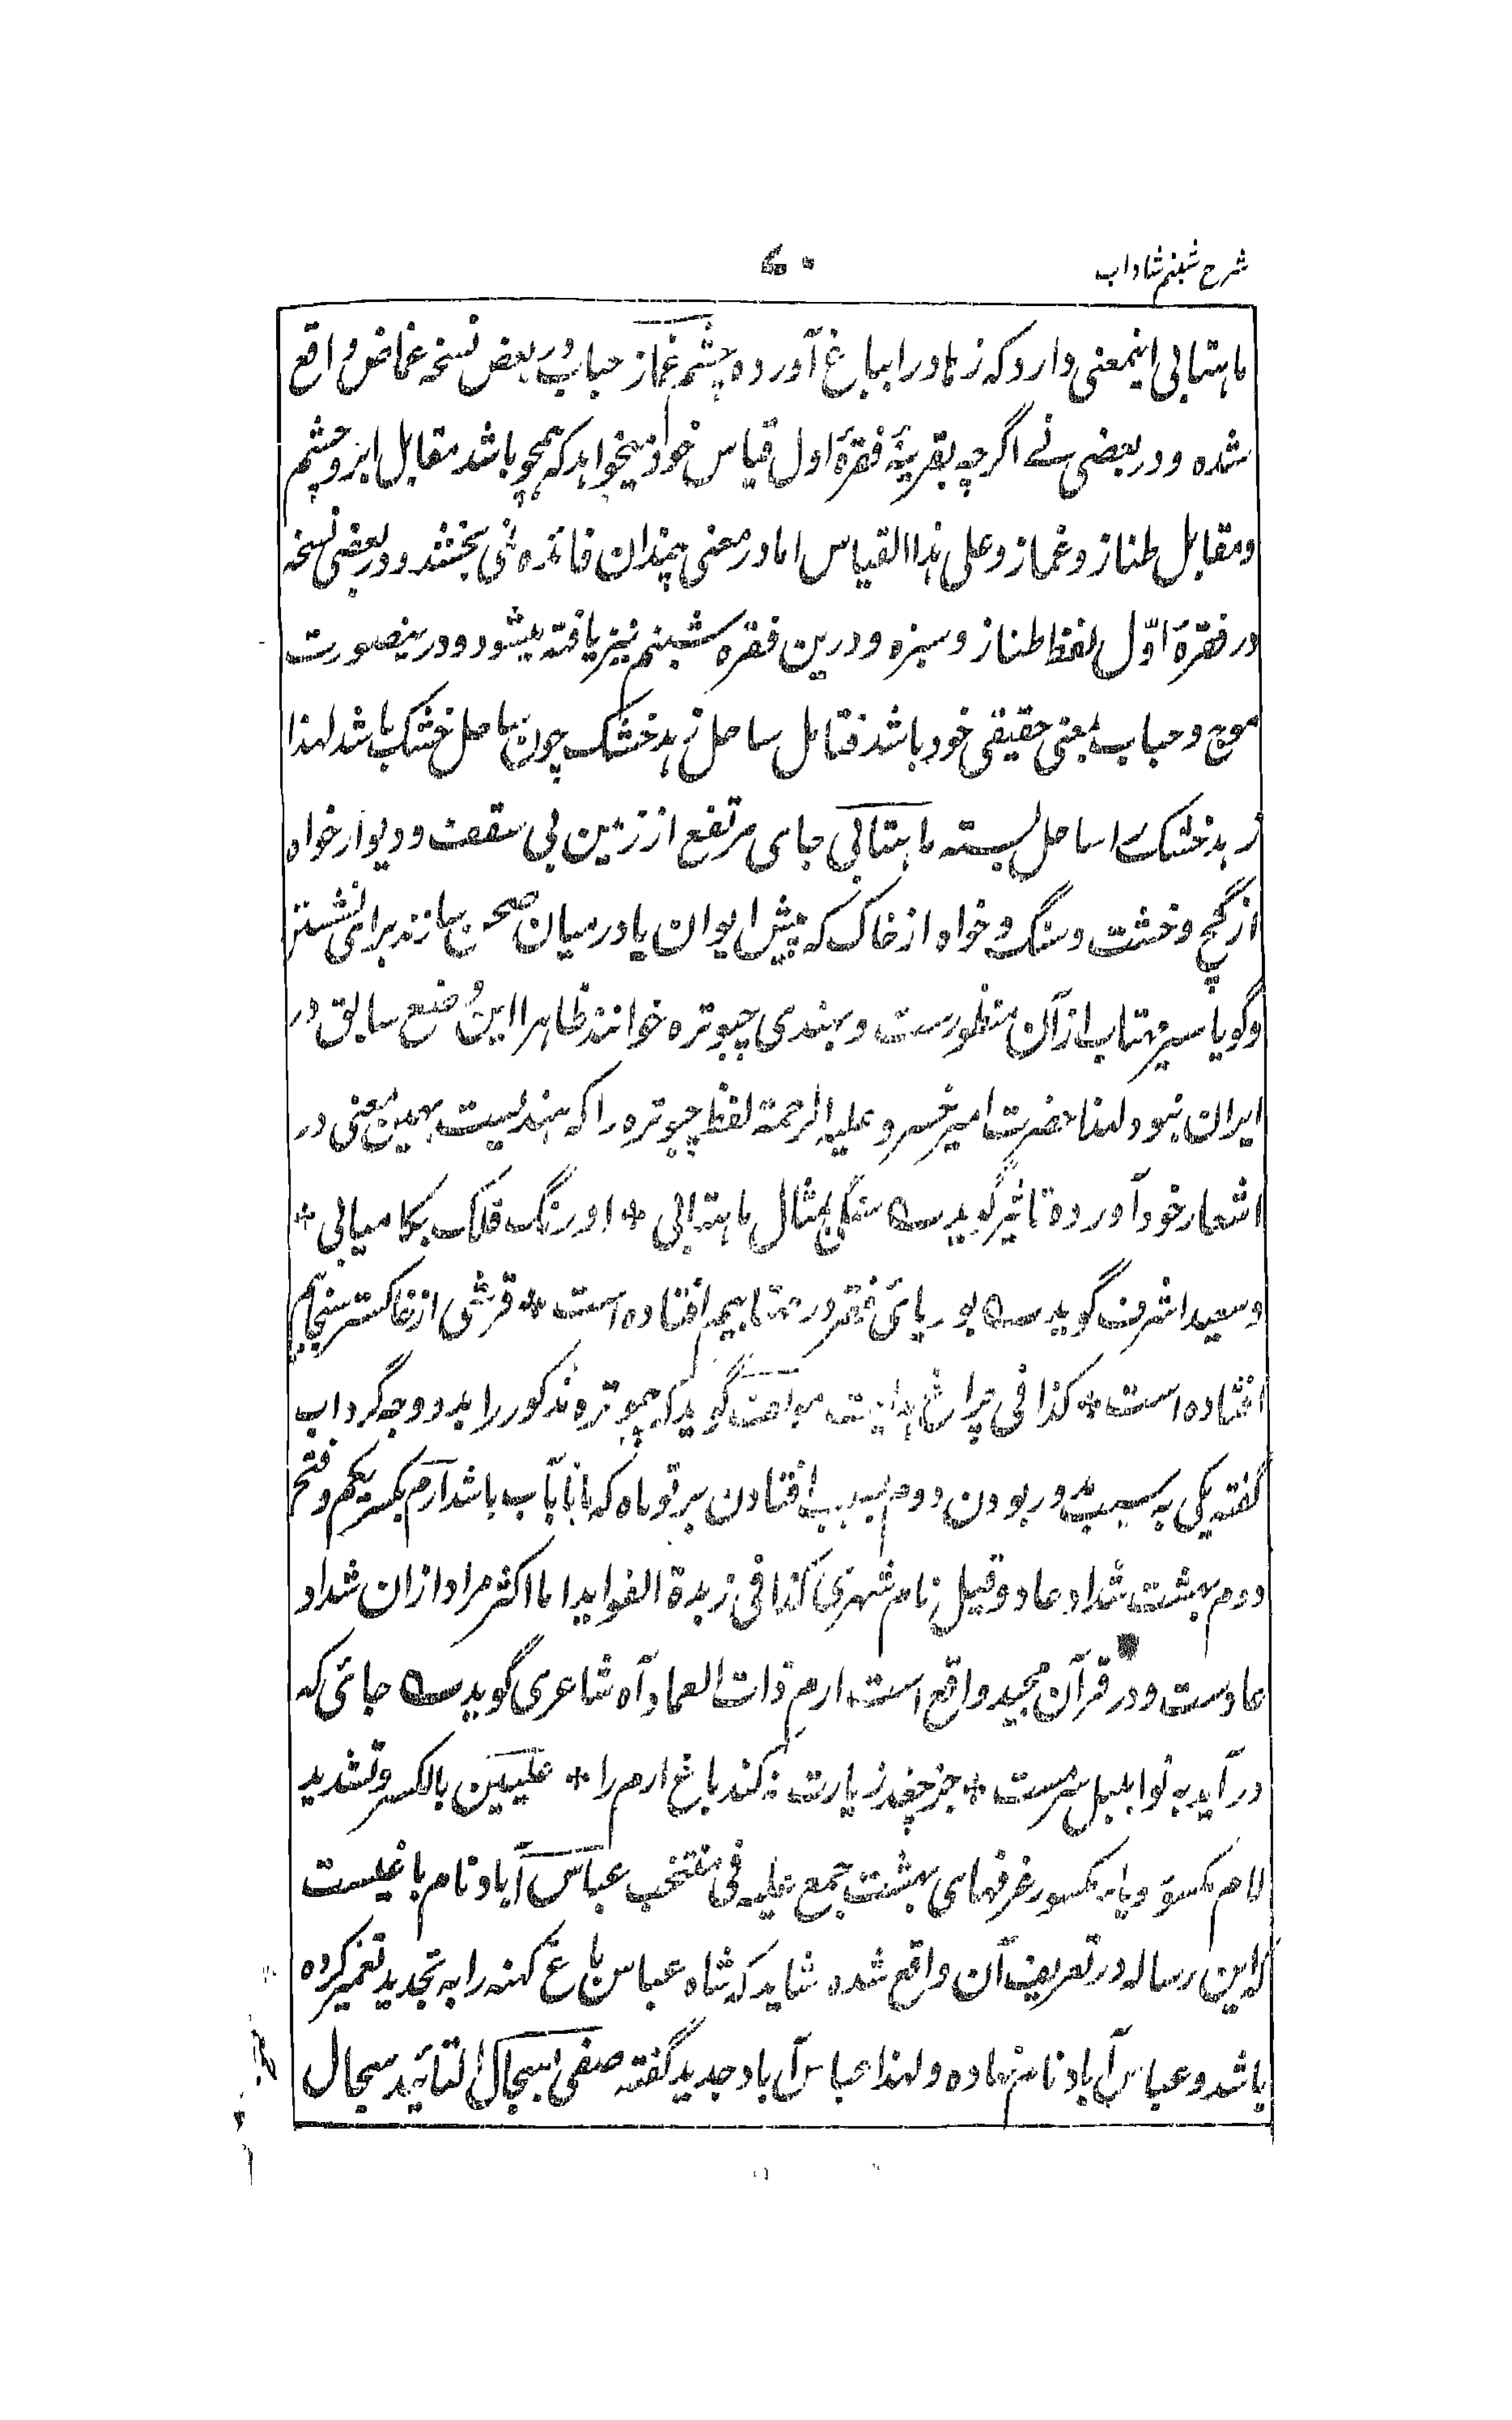 شرح شبنم شاداب
۷۰
ماہتابی اینمعنی دارد کہ زہاد را بباغ آوردہ چشم غماز حباب در بعض نسخہ غماض واقع
شدہ و در بعضی نے اگرچہ بقرینۂ فقرۂ اول قیاس خواد میخواہد کہ ہمچو باشد مقابل ابرو چشم
و مقابل طناز و غماز و علی ہذا القیاس اما در معنی چندان فائدہ نمی بخشد و در بعضی نسخہ
در فقرۂ اوّل لفظ طناز و سبزہ و درین فقرہ شبنم نیز یافتہ میشود و درینصورت
موج و حباب بمعنی حقیقی خود باشد فتامل ساحل زہد خشک چون ساحل خشک باشد لہذا
زہد خشک را ساحل بستہ ماہتابی جای مرتفع از زمین بی سقف و دیوار خواہ
از گچ و خشت و سنگ و خواہ از خاک کہ پیش ایوان یا در میان صحن سازند برای نشستن
و گویا سیر مہتاب ازان منظورست و بہندی چبوترہ خوانند ظاہرا این وضع سابق در
ایران نبود لہذا حضرت امیر خسرو علیہ الرحمۃ لفظ چبوترہ را کہ ہندیست بہمین معنی در
اشعار خود آوردہ تاثیر گوید ؎ سنگی بمثال ماہتابی * اورنگ فلک بکامیابی *
و سعید اشرف گوید ؎ بوریای فقر در مہتابیم افتادہ است * فرشی از خاکستر سنجابیم
افتادہ است * کذا فی چراغ ہدایت گوید کہ چبوترہ مذکور را بدو وجہ گرداب
گفتہ یکی بہ سبب مدور بودن دوم بسبب افتادن پرتو ماہ کہ مانا بآب باشد ارم بکسر یکم و فتح
دوم بہشت شداد عاد و قیل نام شہری کذا فی زبدۃ الفواید اما اکثر مراد ازان شداد
عادست و در قرآن مجید واقع است ارم ذات العماد آہ شاعری گوید ؎ جائی کہ
در آید بہ نوا بلبل سرمست * جز چغد زیارت نکند باغ ارم را * علیین بالکسر و تشدید
لام مکسور و یای مکسور غرفہای بہشت جمع علیہ فی منتخب عباس آباد نام باغیست
کہ این رسالہ در تعریف آن واقع شدہ شاید کہ شاہ عباس باغ کہنہ را بہ تجدید تعمیر کردہ
باشد و عباس آباد نامش نہادہ و لہذا عباس آباد جدید گفتہ صفی اسجال التائید سجال